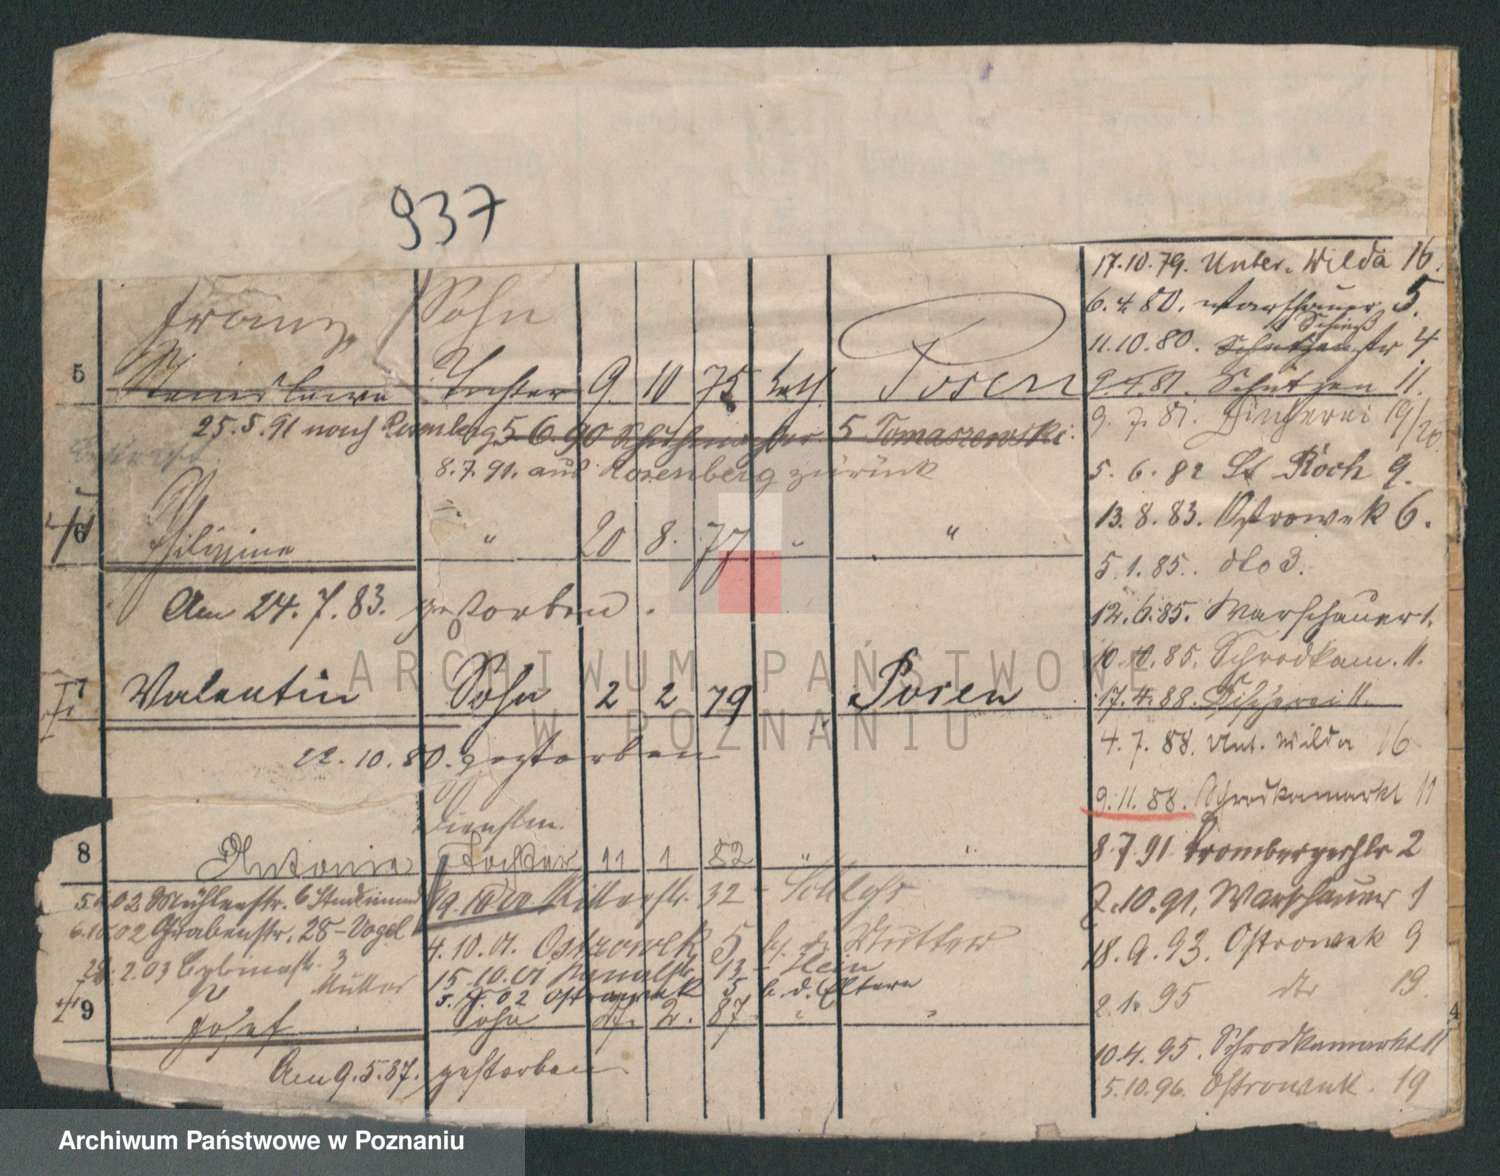 937
Franz Sohn
5 Stanislawa Tochter 9. 10 75 kath. Posen
25.5.91 nach Rosenberg 5.6.90 5 Tomaszewski.
8.7.91. aus Rosenberg zurück
6 Philippine " 20 8. 77 " "
Am 24.7.83. gestorben.
7 Valentin Sohn 2 2 79 Posen
22.10.80. gestorben
Dienstm.
8 Antonie Tochter 11 1 82 " "
5. .02 Mühlenstr. 6 Ritterstr. 32 -
6.10.02 Grabenstr. 28 - Vogel
4.10.01. Ostrowek 5 b. d. Mutter
28.2.03 3
Mutter
15.10.01 Kanalstr. 13 - Klein
5. .02 Ostrowek 5 b. d. Eltern
9 Josef Sohn 2. 87. " "
Am 9.5.87. gestorben
17.10.79. Unter. Wilda 16.
6.4.80. Warschauer 5.
Schieß
11.10.80. Schützenstr 4
2.4.81. Schützen 11.
9.7.81. 19/20
5.6.82 St Roch 9.
13.8.83. Ostrowek 6.
5.1.85. dto 3.
12.6.85. Warschauer 1.
10.10.85. Schrodkam. 11.
17.4.88. Fischerei 11.
4.7.88. Unt. Wilda 16
9.11.88. Schrodkamarkt 11
8.7.91 Brombergerstr 2
2.10.91. Warschauer 1
18.9.93. Ostrowek 9
2.1.95 dto 19.
10.4.95. Schrodkamarkt 11
5.10.96. Ostrowek. 19
4
ARCHIWUM PAŃSTWOWE
W POZNANIU
Archiwum Państwowe w Poznaniu